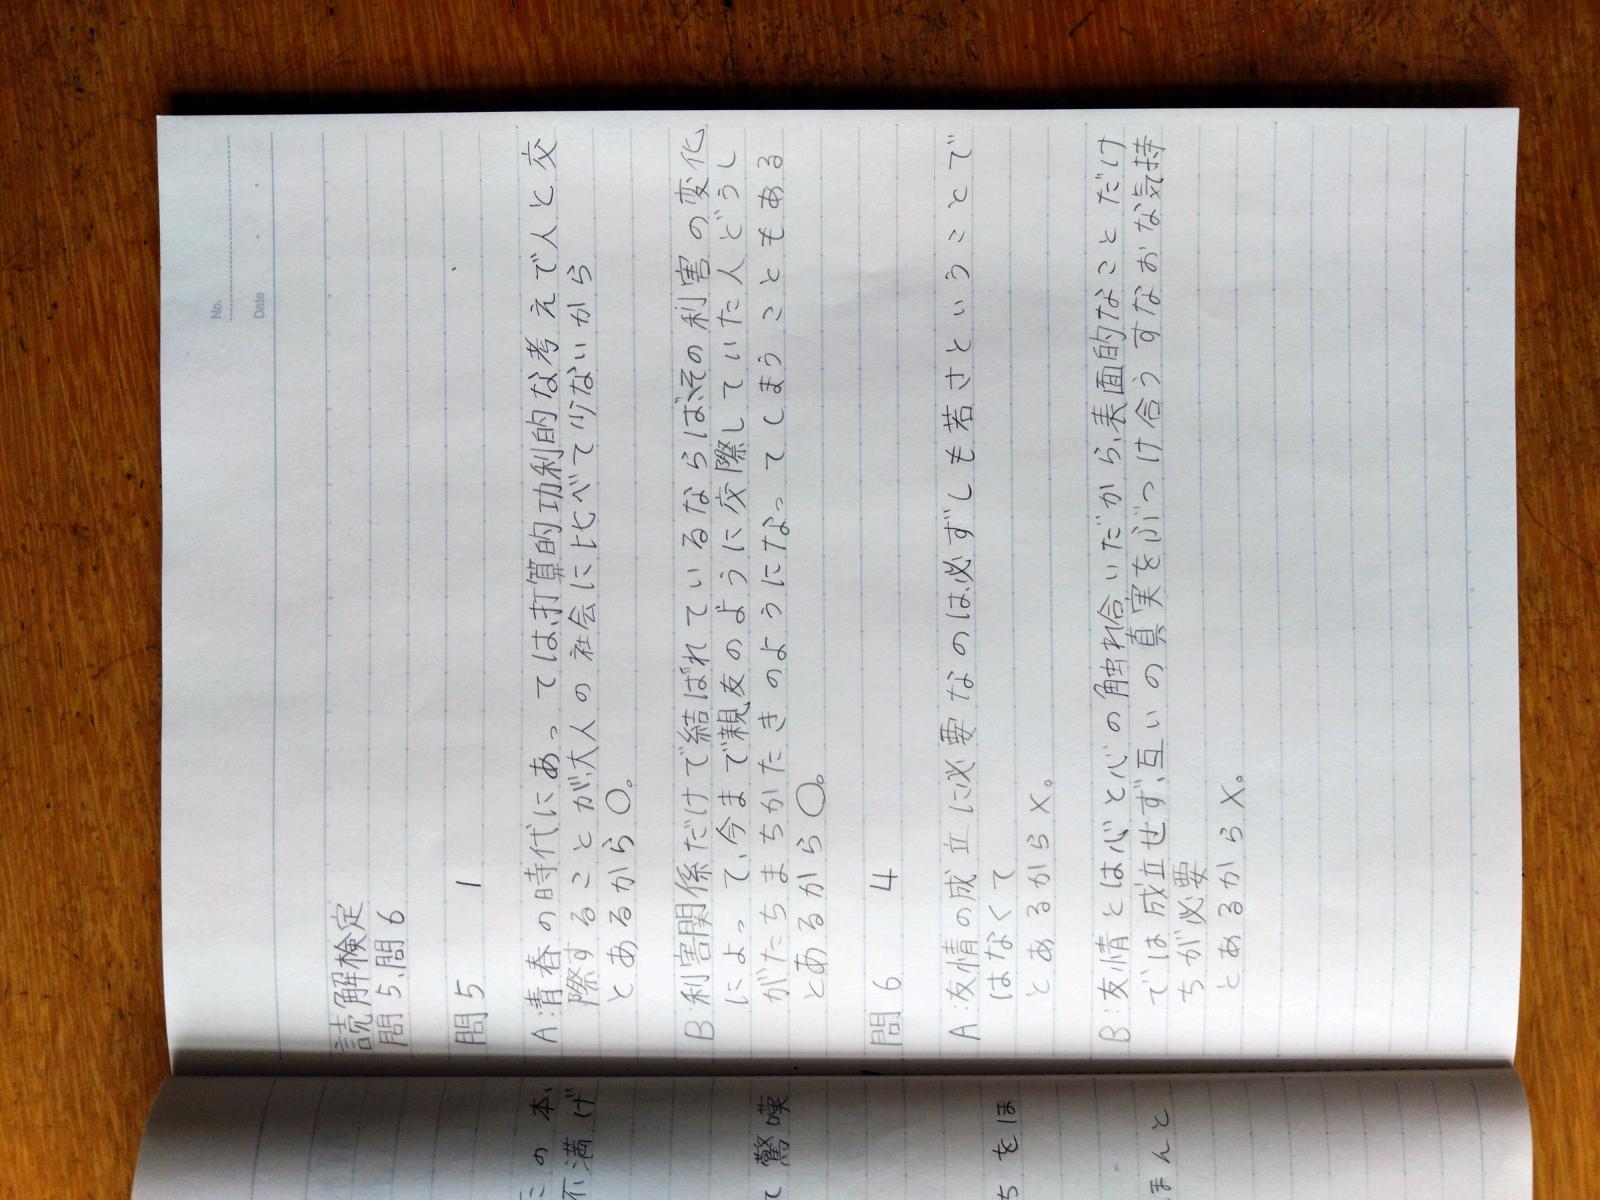 No.
Date
読解検定
問5、問6
問5 1
A:青春の時代にあっては、打算的功利的な考えで人と交
際することが、大人の社会に比べて少ないから
とあるから○。
B:利害関係だけで結ばれているならば、その利害の変化
によって、今まで親友のように交際していた人どうし
がたちまちかたきのようになってしまうこともある
とあるから○。
問6 4
A:友情の成立に必要なのは、必ずしも若さということで
はなくて
とあるから×。
B:友情とは心と心の触れ合いだから、表面的なことだけ
では成立せず、互いの真実をぶつけ合うすなおな気持
ちが必要
とあるから×。
この本、
不満げ
て驚嘆
ちをほ
ほんと